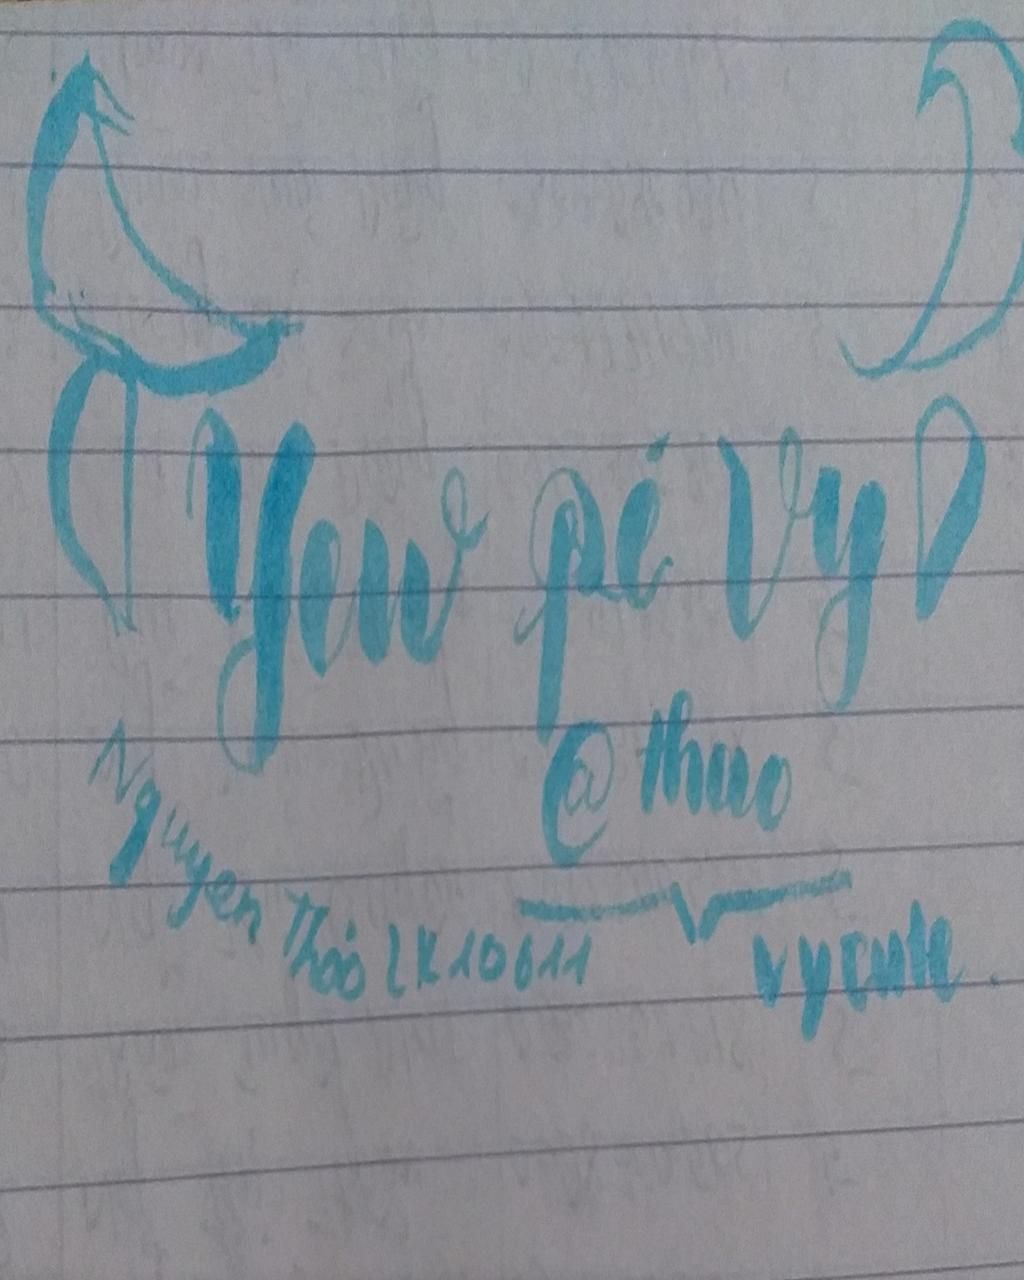 Yew pé Vy
@thao
Nguyen Thảo LK10611
vycute.